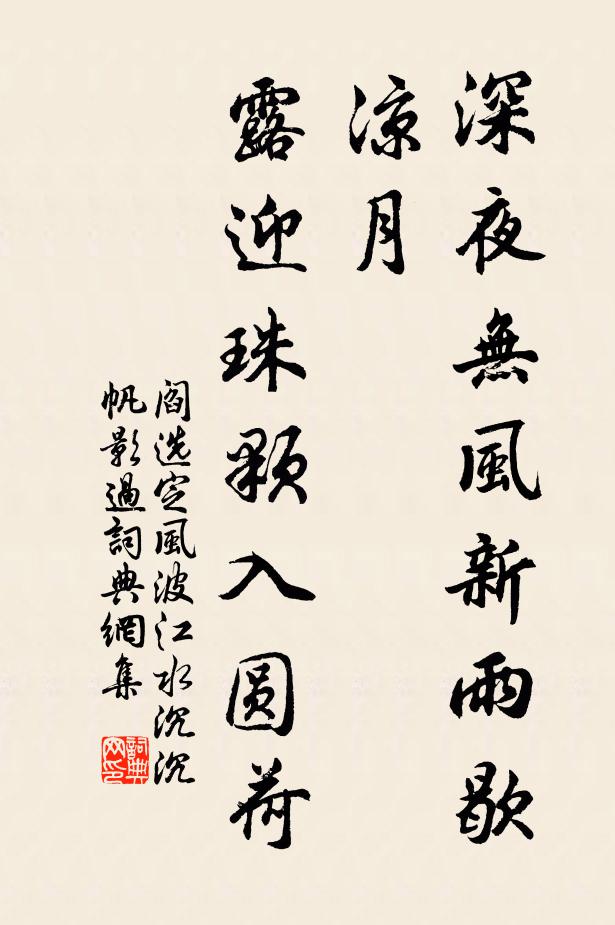 深夜無風新雨歇
涼月
露迎珠顆入圓荷
閻选定風波江水沉沉
帆影過詞典網集
詞典网印